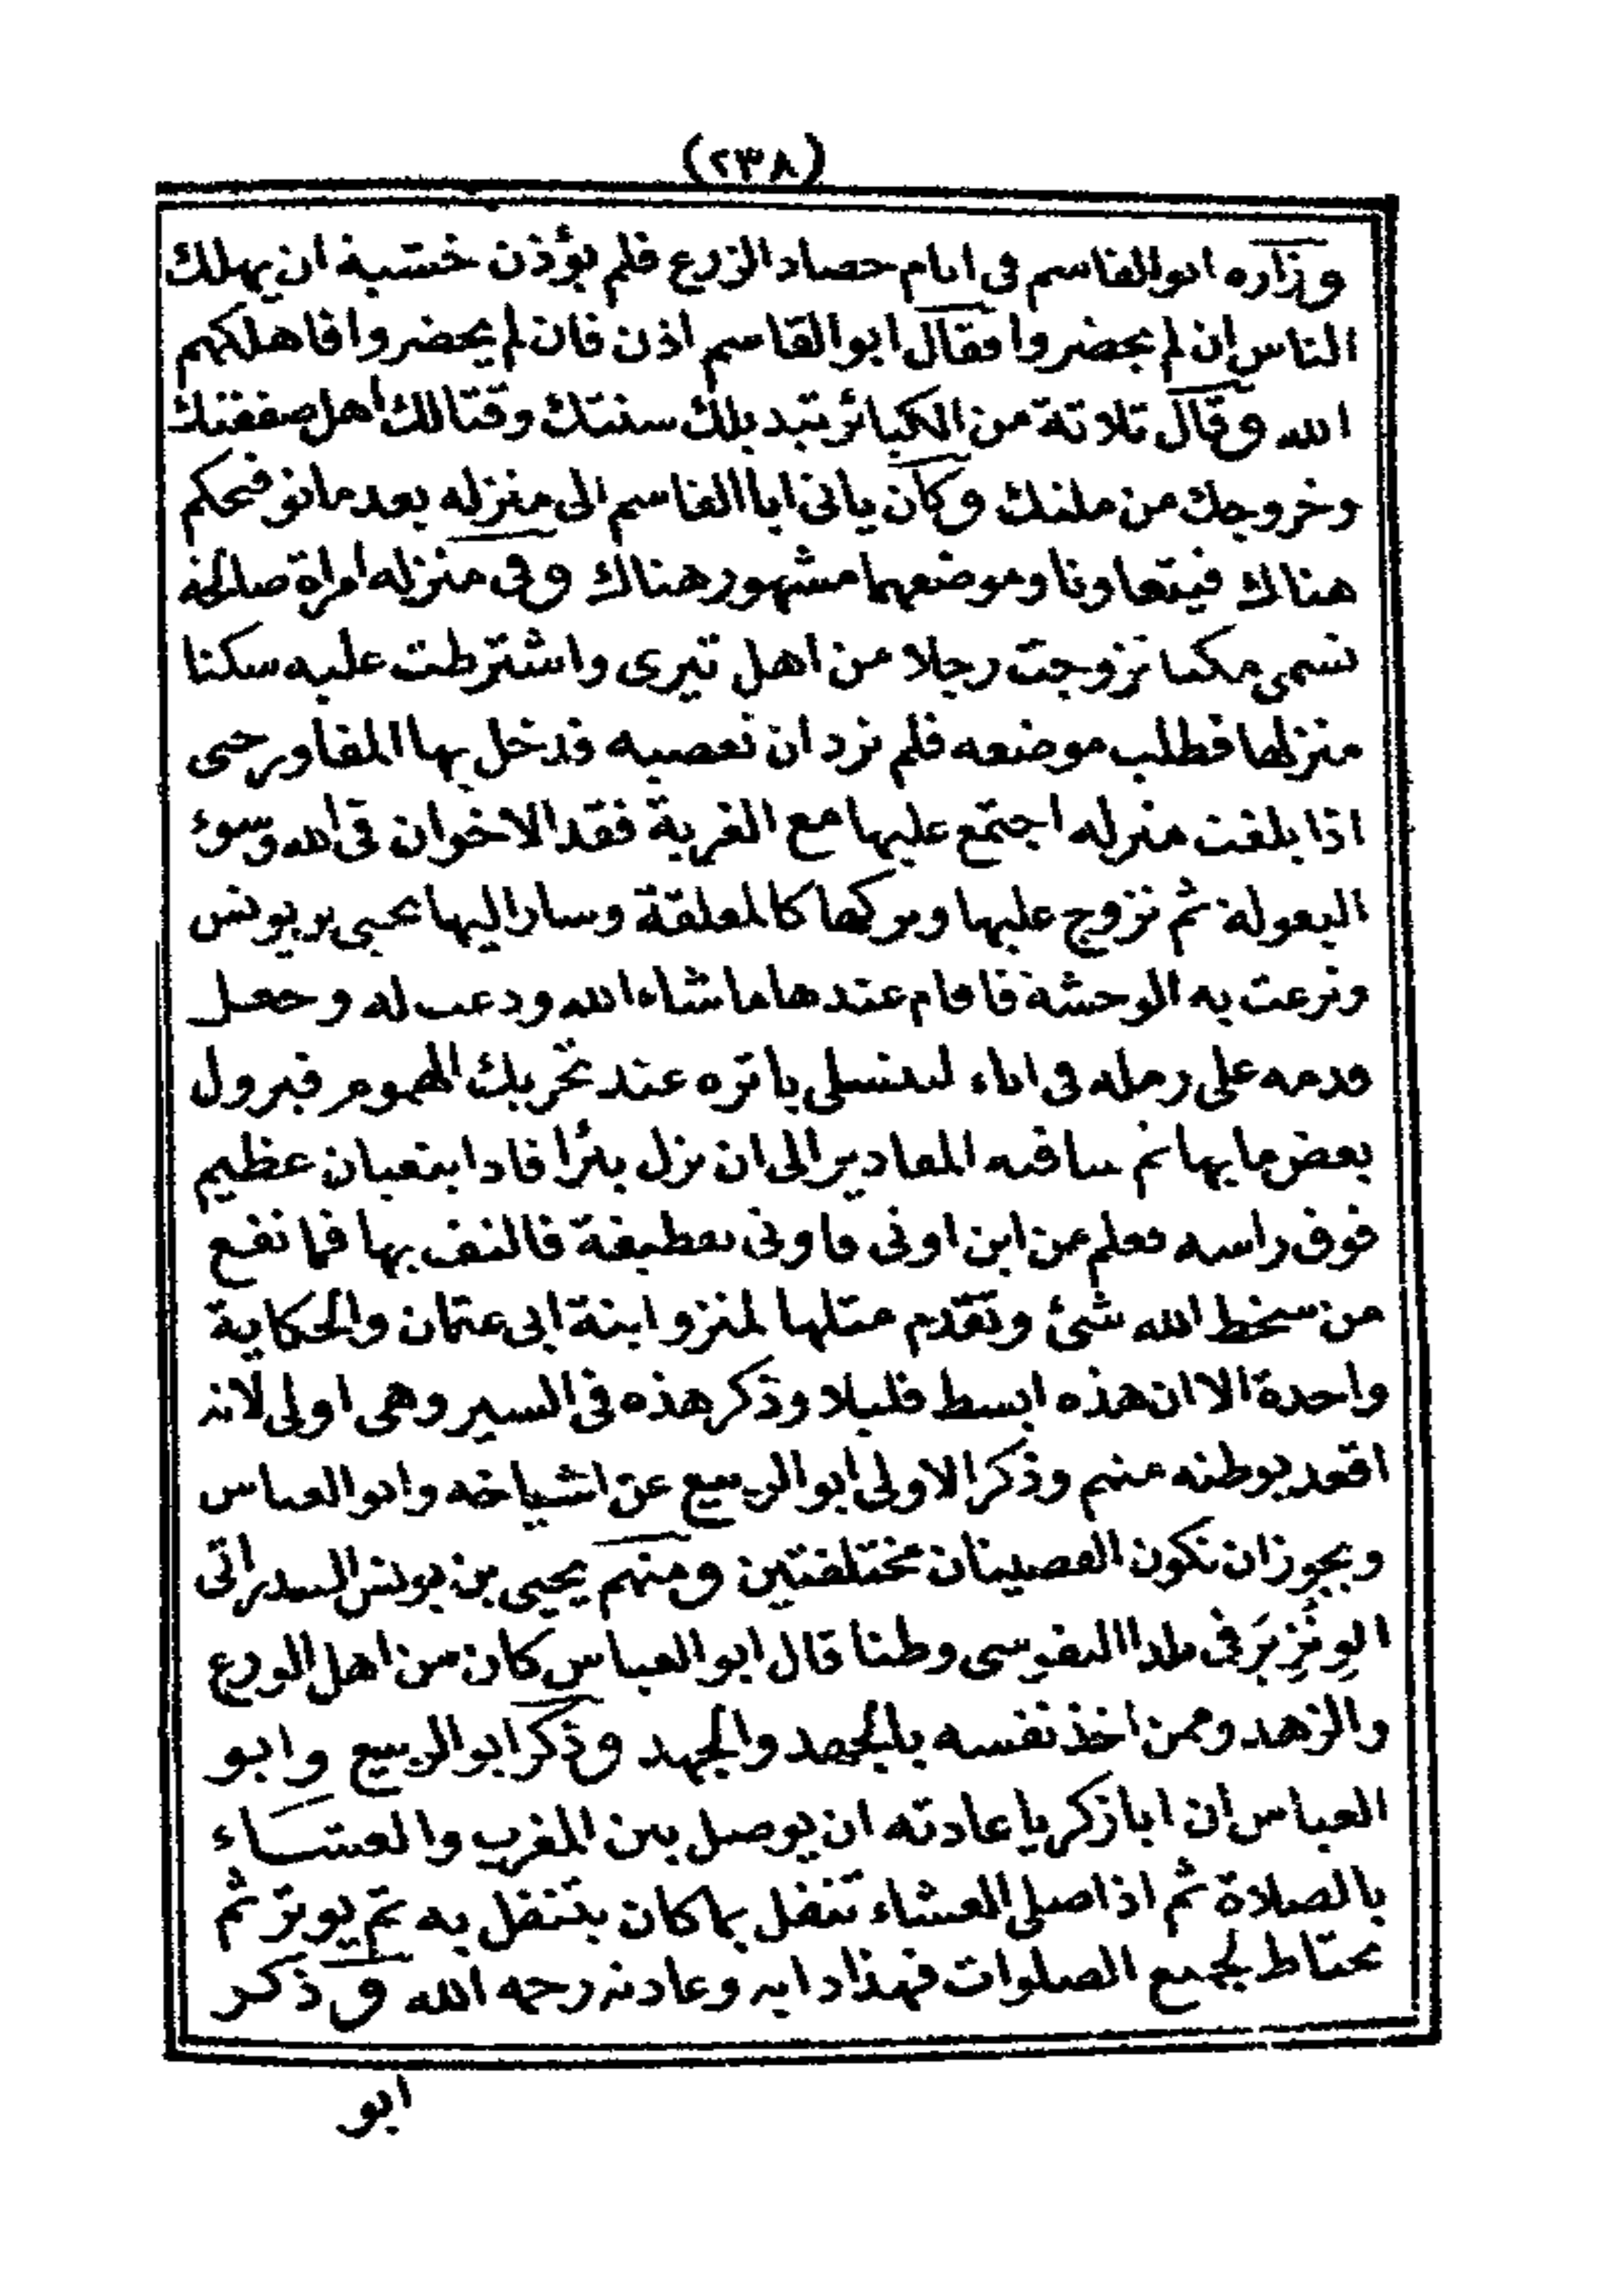 (٢٣٨)
وزاره ابوالقاسم فى ايام حصاد الزرع فلم يؤذن خشية ان يهلك
الناس ان لم يحضروا فقال ابوالقاسم اذن فان لم يحضروا فاهلكهم
الله وقال ثلاثة من الكبائر تبديلك سنتك وقتالك اهل صفقتك
وخروجك من ملتك وكان ياتى ابا القاسم الى منزله بعد
هناك فيتعاونا وموضعهما مشهور هناك وفى منزله امراة صالحة
تسمى تزوجت رجلا من اهل تيرى واشترطت عليه سكنا
منزلها فطلب موضعه فلم ترد ان تعصيه فدخل بها المفاوز حتى
اذا بلغت منزله اجتمع عليها مع الغربة فقد الاخوان فى الله وسوء
البعولة ثم تزوج عليها وتركها كالمعلقة وسار اليها يحيى بن يونس
ونزعت به الوحشة فاقام عندها ما شاء الله ودعت له وجعل
قدمه على رمله فى اناء لتتسلى باثره عند تحريك الهموم فيزول
بعض ما بها ثم ساقته المقادير الى ان نزل بئرا فاذا بثعبان عظيم
فوق راسه فعلم من اين اوتى فاوتى بقطيفة فالتف بها فما نفع
من سخط الله شئ وتقدم مثلها لمنزو ابنة ابى عثمان والحكاية
واحدة الا ان هذه ابسط قليلا وذكر هذه فى السير وهى اولى لانه
اقعد بوطنه منهم وذكر الاولى ابو الربيع عن اشياخه وابو العباس
ويجوز ان تكون القصيتان مختلفتين ومنهم يحيى بن يونس السدراتى
الوِنْزِيرَفى النفوسى وطنا قال ابو العباس كان من اهل الورع
والزهد وممن اخذ نفسه بالجهد والجهد وذكر ابو الربيع وابو
العباس ان ابا زكريا عادته ان يوصل بين المغرب والعشاء
بالصلاة ثم اذا صلى العشاء تنفل بما كان يتنفل به ثم يوتر ثم
يحتاط لجميع الصلوات فهذا دابه وعادته رحمه الله وذكر
ابو